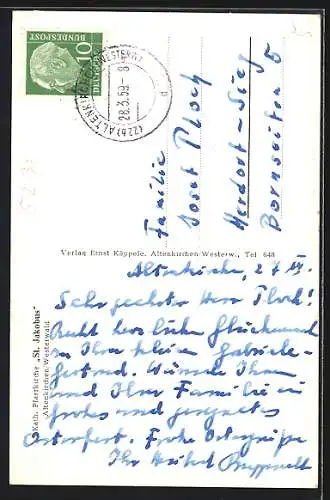 10
DEUTSCHE
BUNDESPOST
(22b) ALTENKIRCHEN (WESTERW)
28.3.59 - 8
Familie
Josef Ploch
Herdorf-Sieg
Bornseiten 5
Verlag Ernst Käppele, Altenkirchen/Westerw., Tel 648
Kath. Pfarrkirche „St. Jakobus"
Altenkirchen/Westerwald
Altenkirchen, 27.
Sehr geehrter Herr Ploch!
Recht herzlichen Glückwunsch
zu Ihrer kleinen Gabriele-
Gertrud. Wünsche Ihnen
und Ihrer Familie ein
frohes und gesegnetes
Osterfest. Frohe Ostergrüße
Ihr